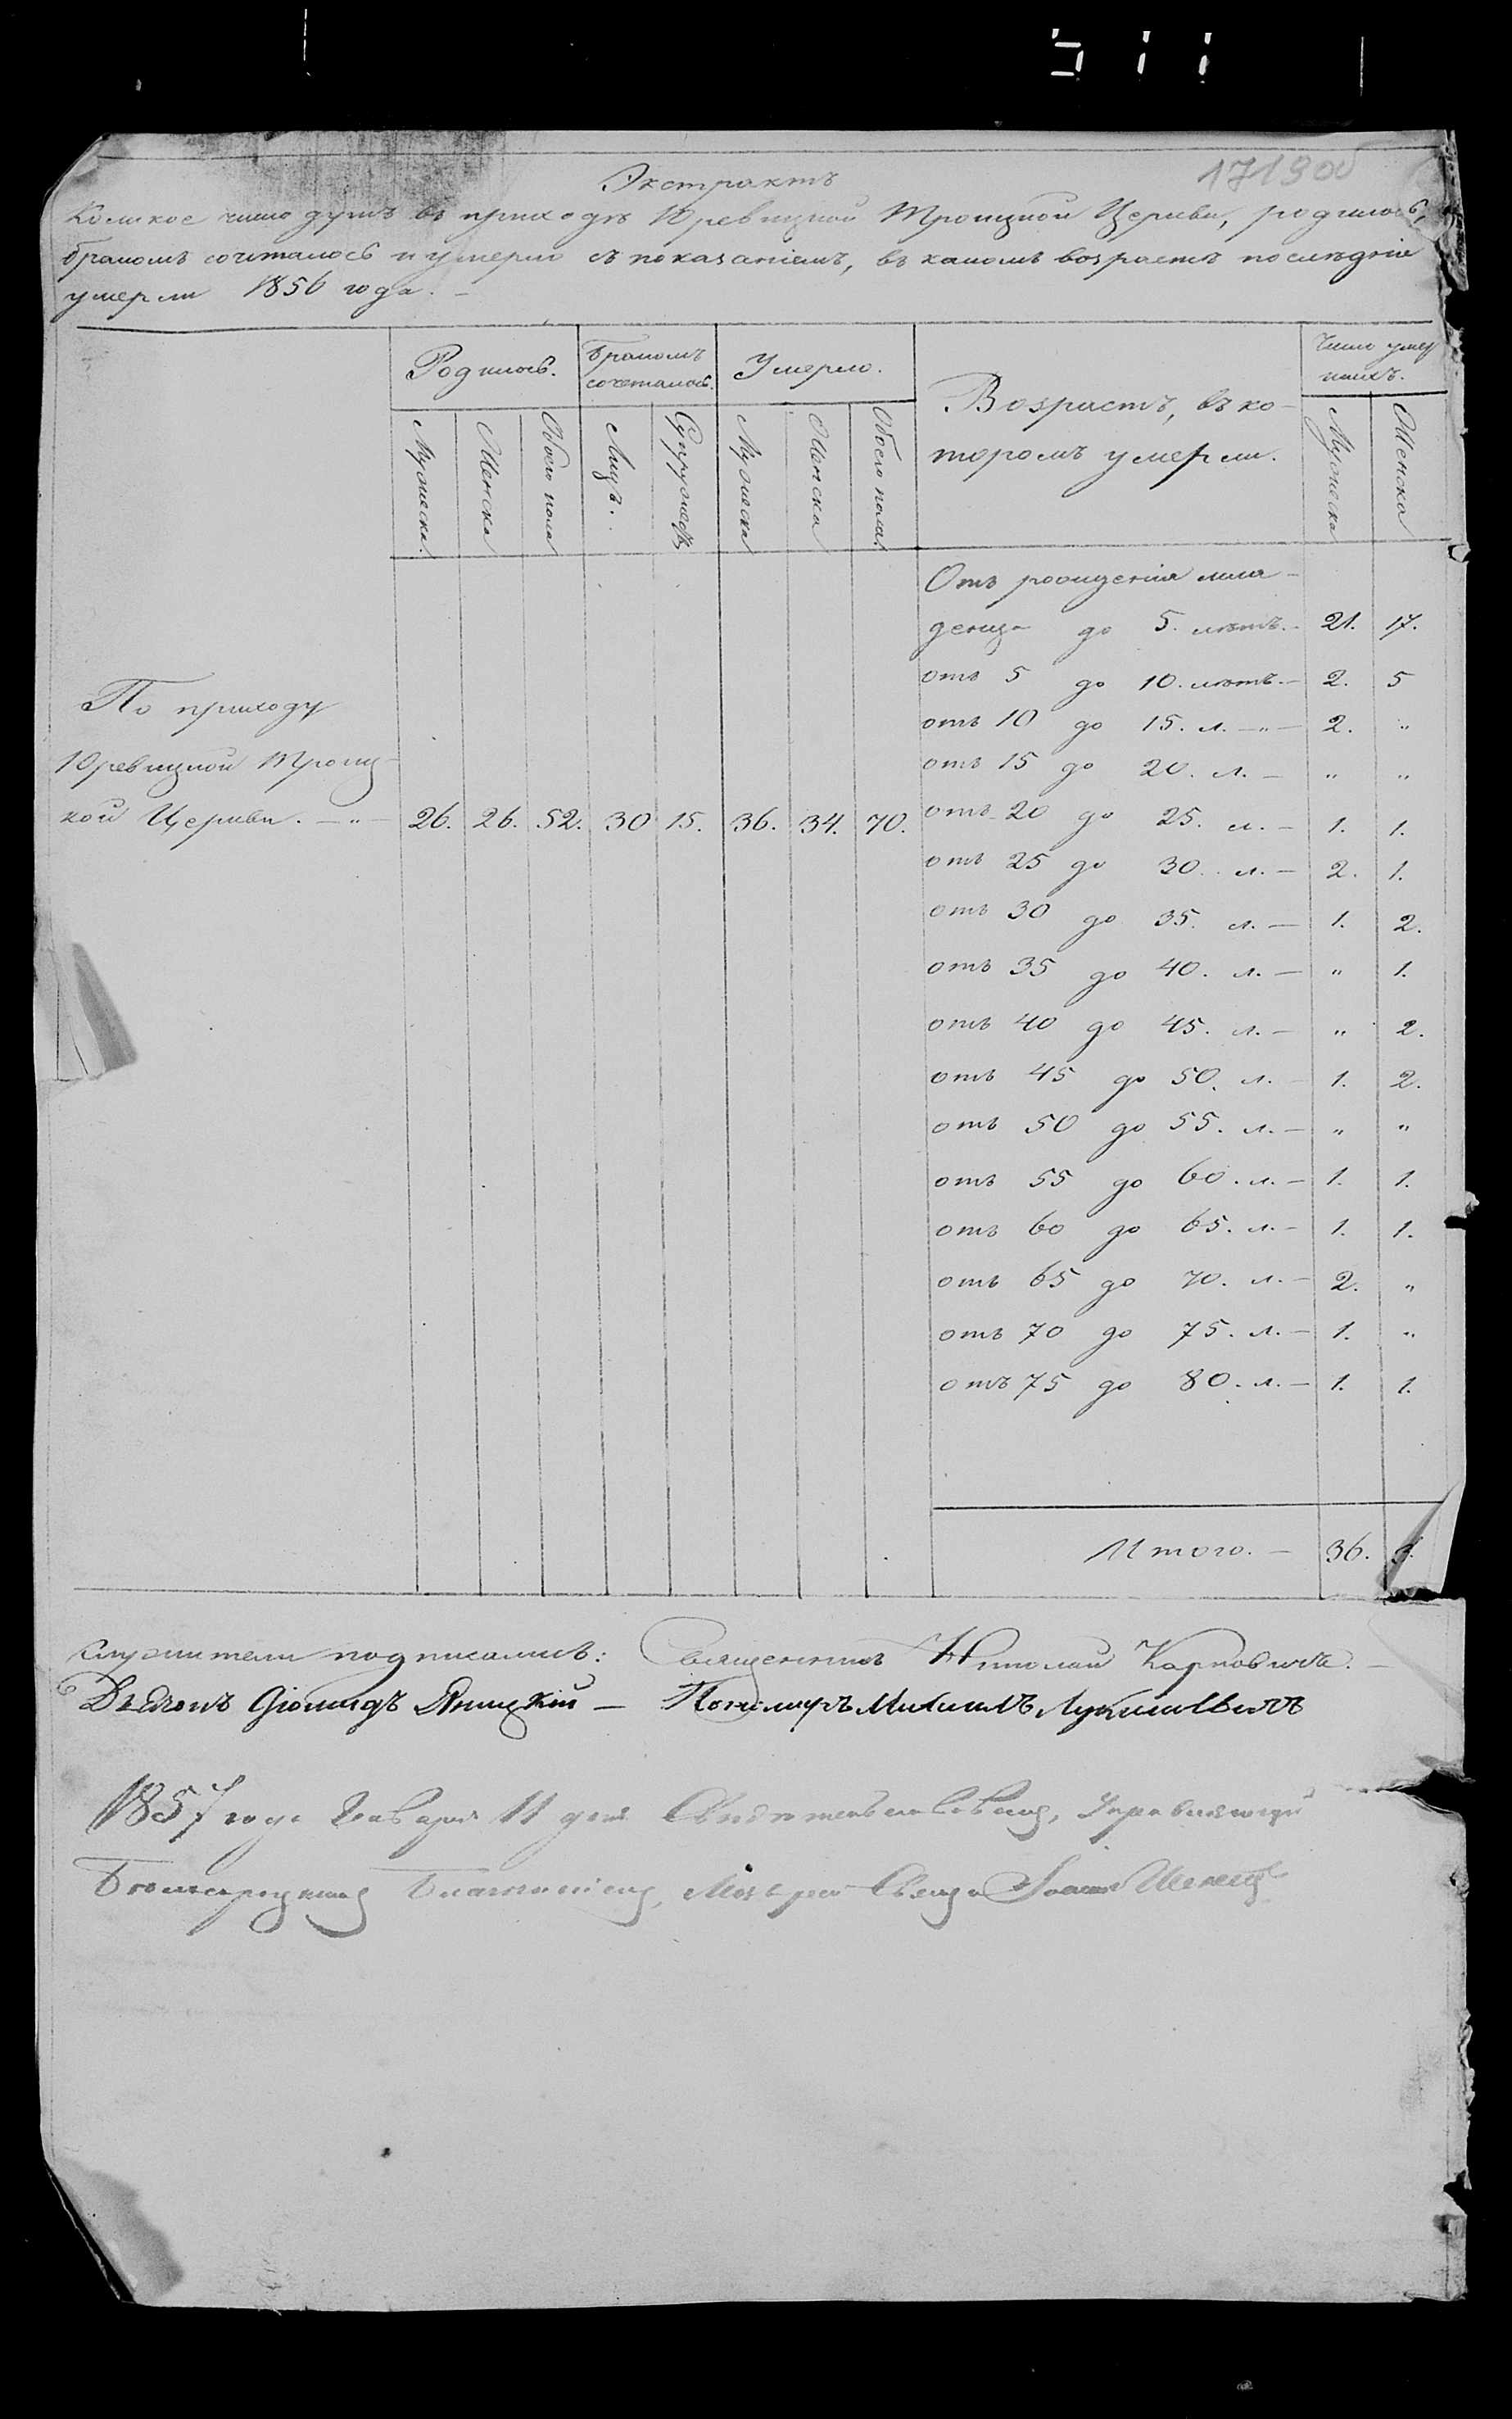 171 900б
Экстрактъ
Коликое число душъ въ приходѣ Юревицкой Троицкой Церкви, родилось,
бракомъ сочеталось и умерло съ показаніемъ, въ какомъ возрастѣ послѣдніе
умерли 1856 года. —
Родилось. Бракомъ сочеталось. Умерло. Возрастъ, въ ко- Число умер
торомъ умерли. шихъ.
Мужеска Женска Обоего пола Лицъ. Супружествъ Мужеска Женска Обоего пола Мужеска Женска
Отъ рожденія мла-
денца до 5. лѣтъ. — 21. 17.
отъ 5 до 10. лѣтъ. — 2. 5
отъ 10 до 15. л. — „ — 2. „
отъ 15 до 20. л. — „ „
По приходу
Юревицкой Троиц-
кой Церкви. — „ — 26. 26. 52. 30 15. 36. 34. 70.
отъ 20 до 25. л. — 1. 1.
отъ 25 до 30. л. — 2. 1.
отъ 30 до 35. л. — 1. 2.
отъ 35 до 40. л. — „ 1.
отъ 40 до 45. л. — „ 2.
отъ 45 до 50. л. — 1. 2.
отъ 50 до 55. л. — „ „
отъ 55 до 60. л. — 1. 1.
отъ 60 до 65. л. — 1. 1.
отъ 65 до 70. л. — 2. „
отъ 70 до 75. л. — 1. „
отъ 75 до 80. л. — 1. 1.
Итого. — 36.
служители подписались: Священникъ Николай Карповичъ. —
Дьяконъ Яницкій — Пономарь Михаилъ
1857 года Января 11 дня Управляющій
Благочиніемъ,